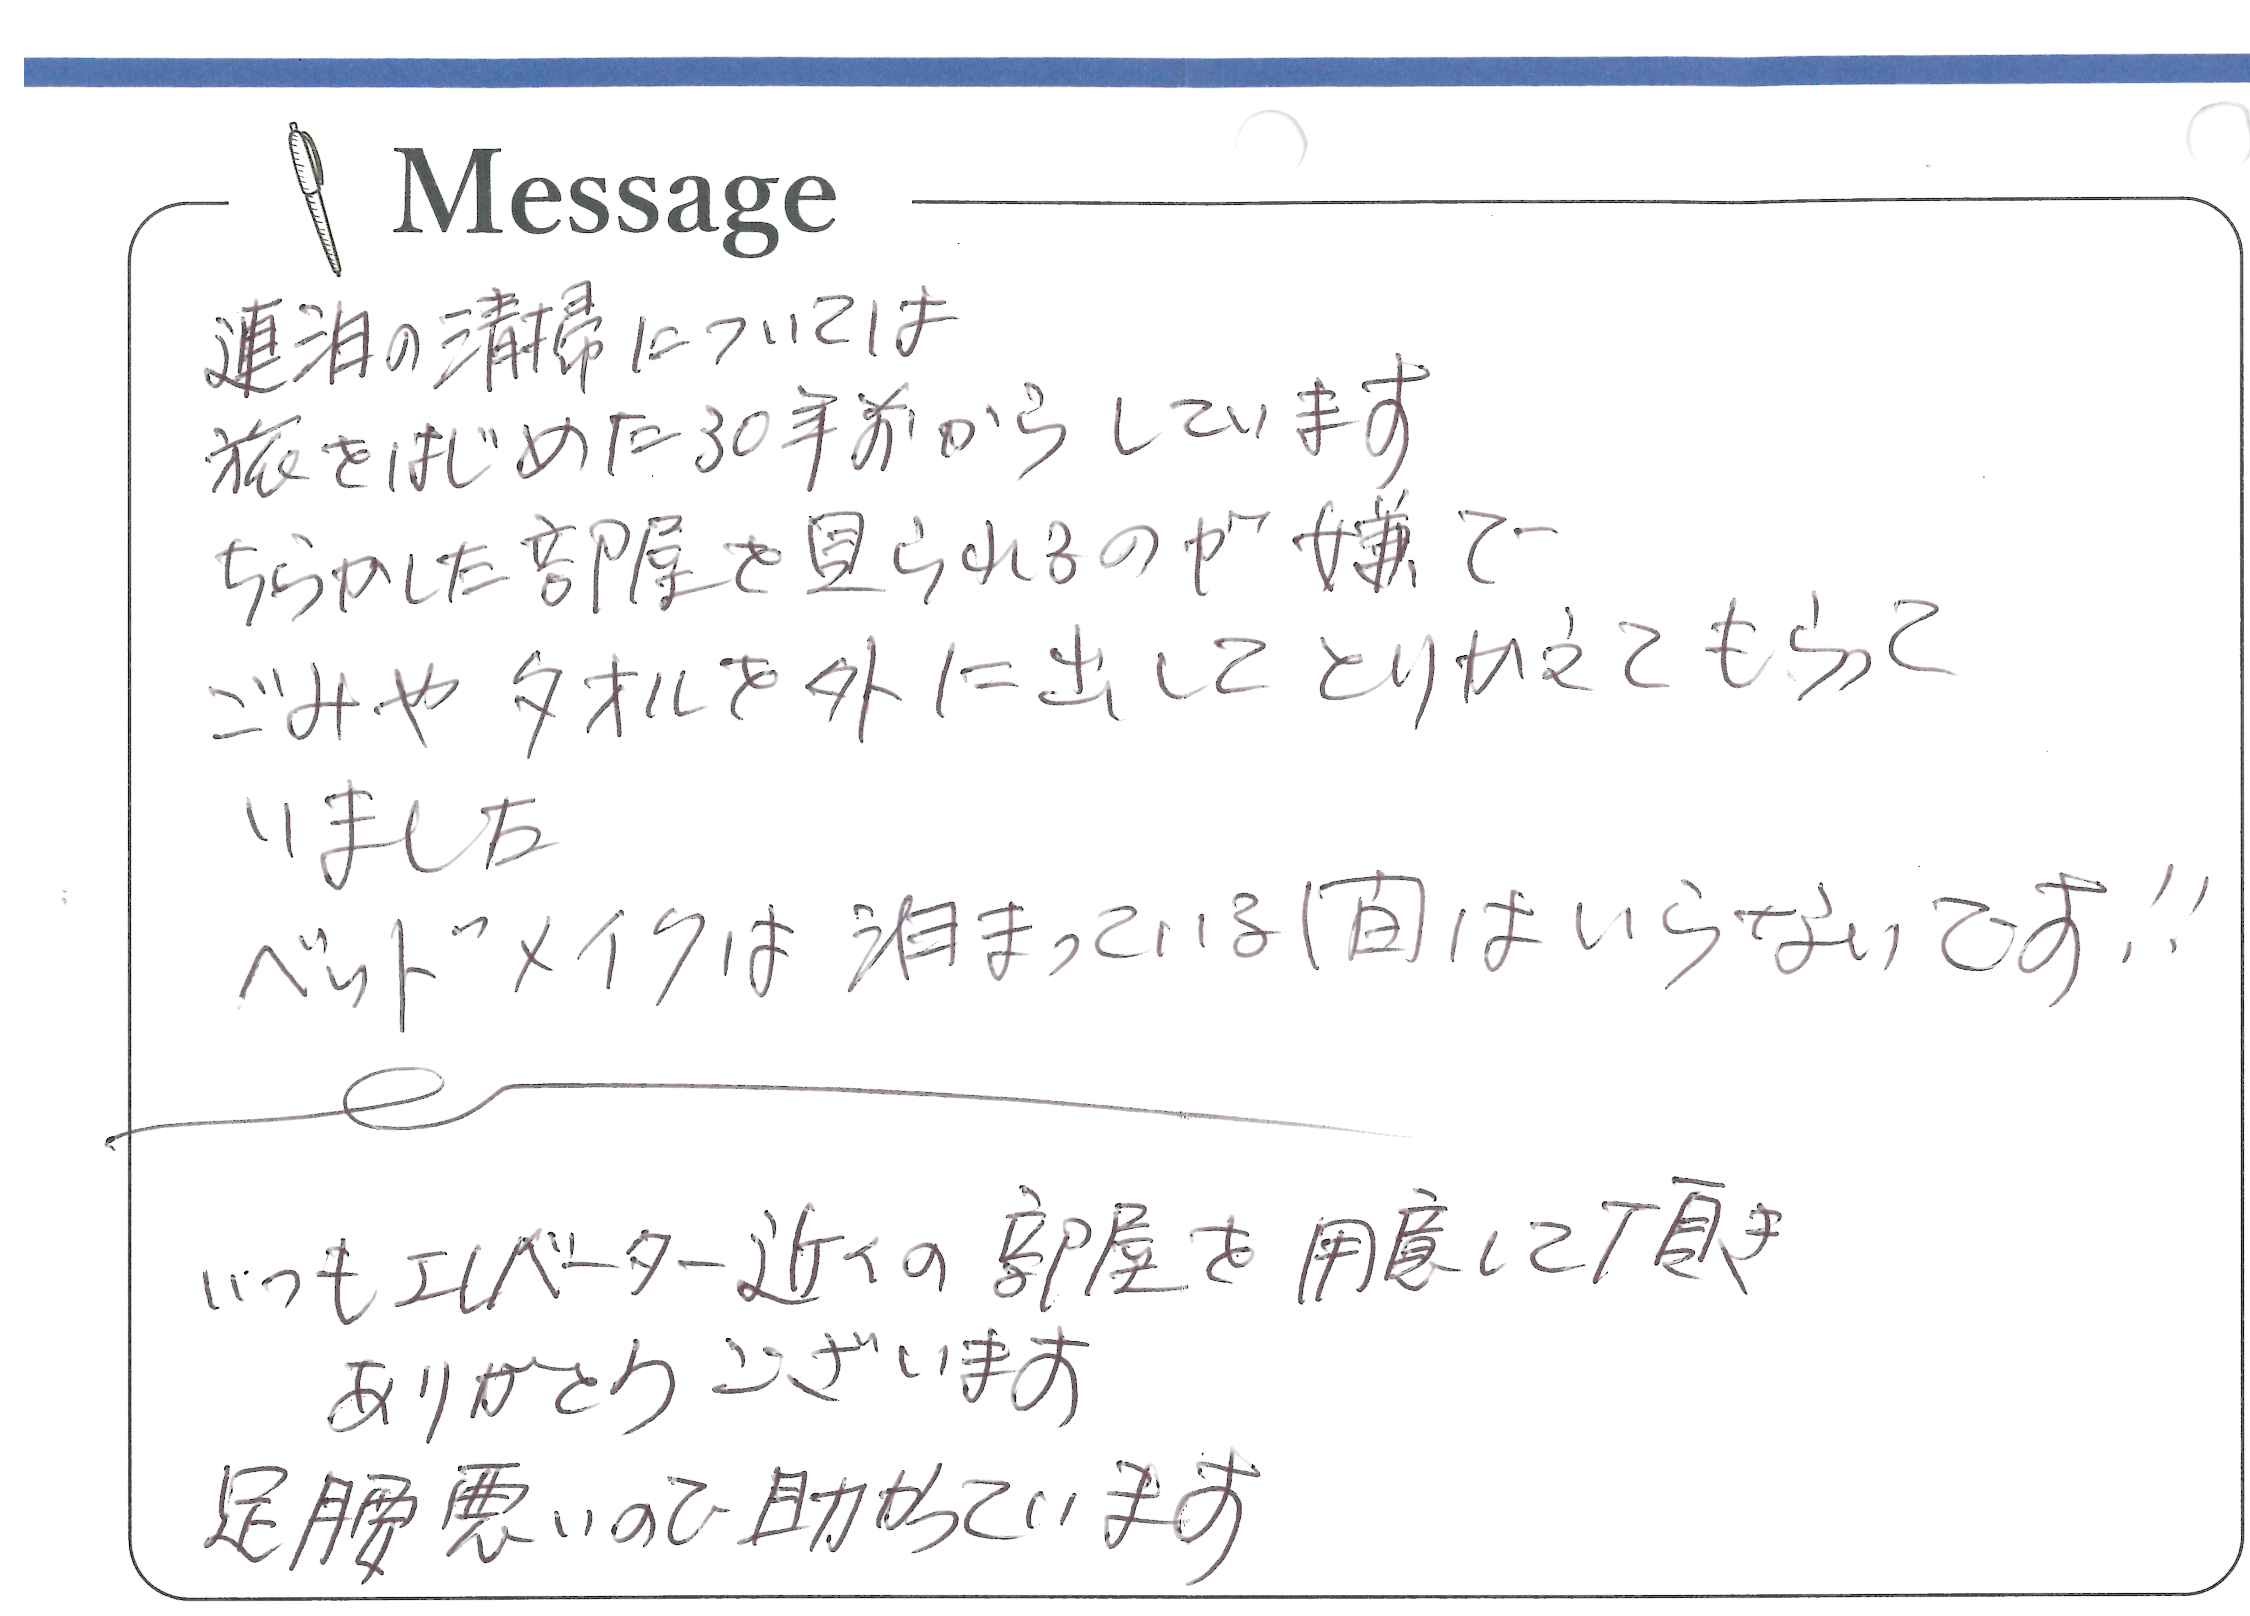 Message
連泊の清掃については
旅をはじめた30年前からしています
ちらかした部屋を見られるのが嫌で
ごみやタオルを外に出してとりかえてもらって
いました
ベッドメイクは泊まっている間はいらないです!!
いつもエレベーター近くの部屋を用意して頂き
ありがとうございます
足腰悪いので助かっています